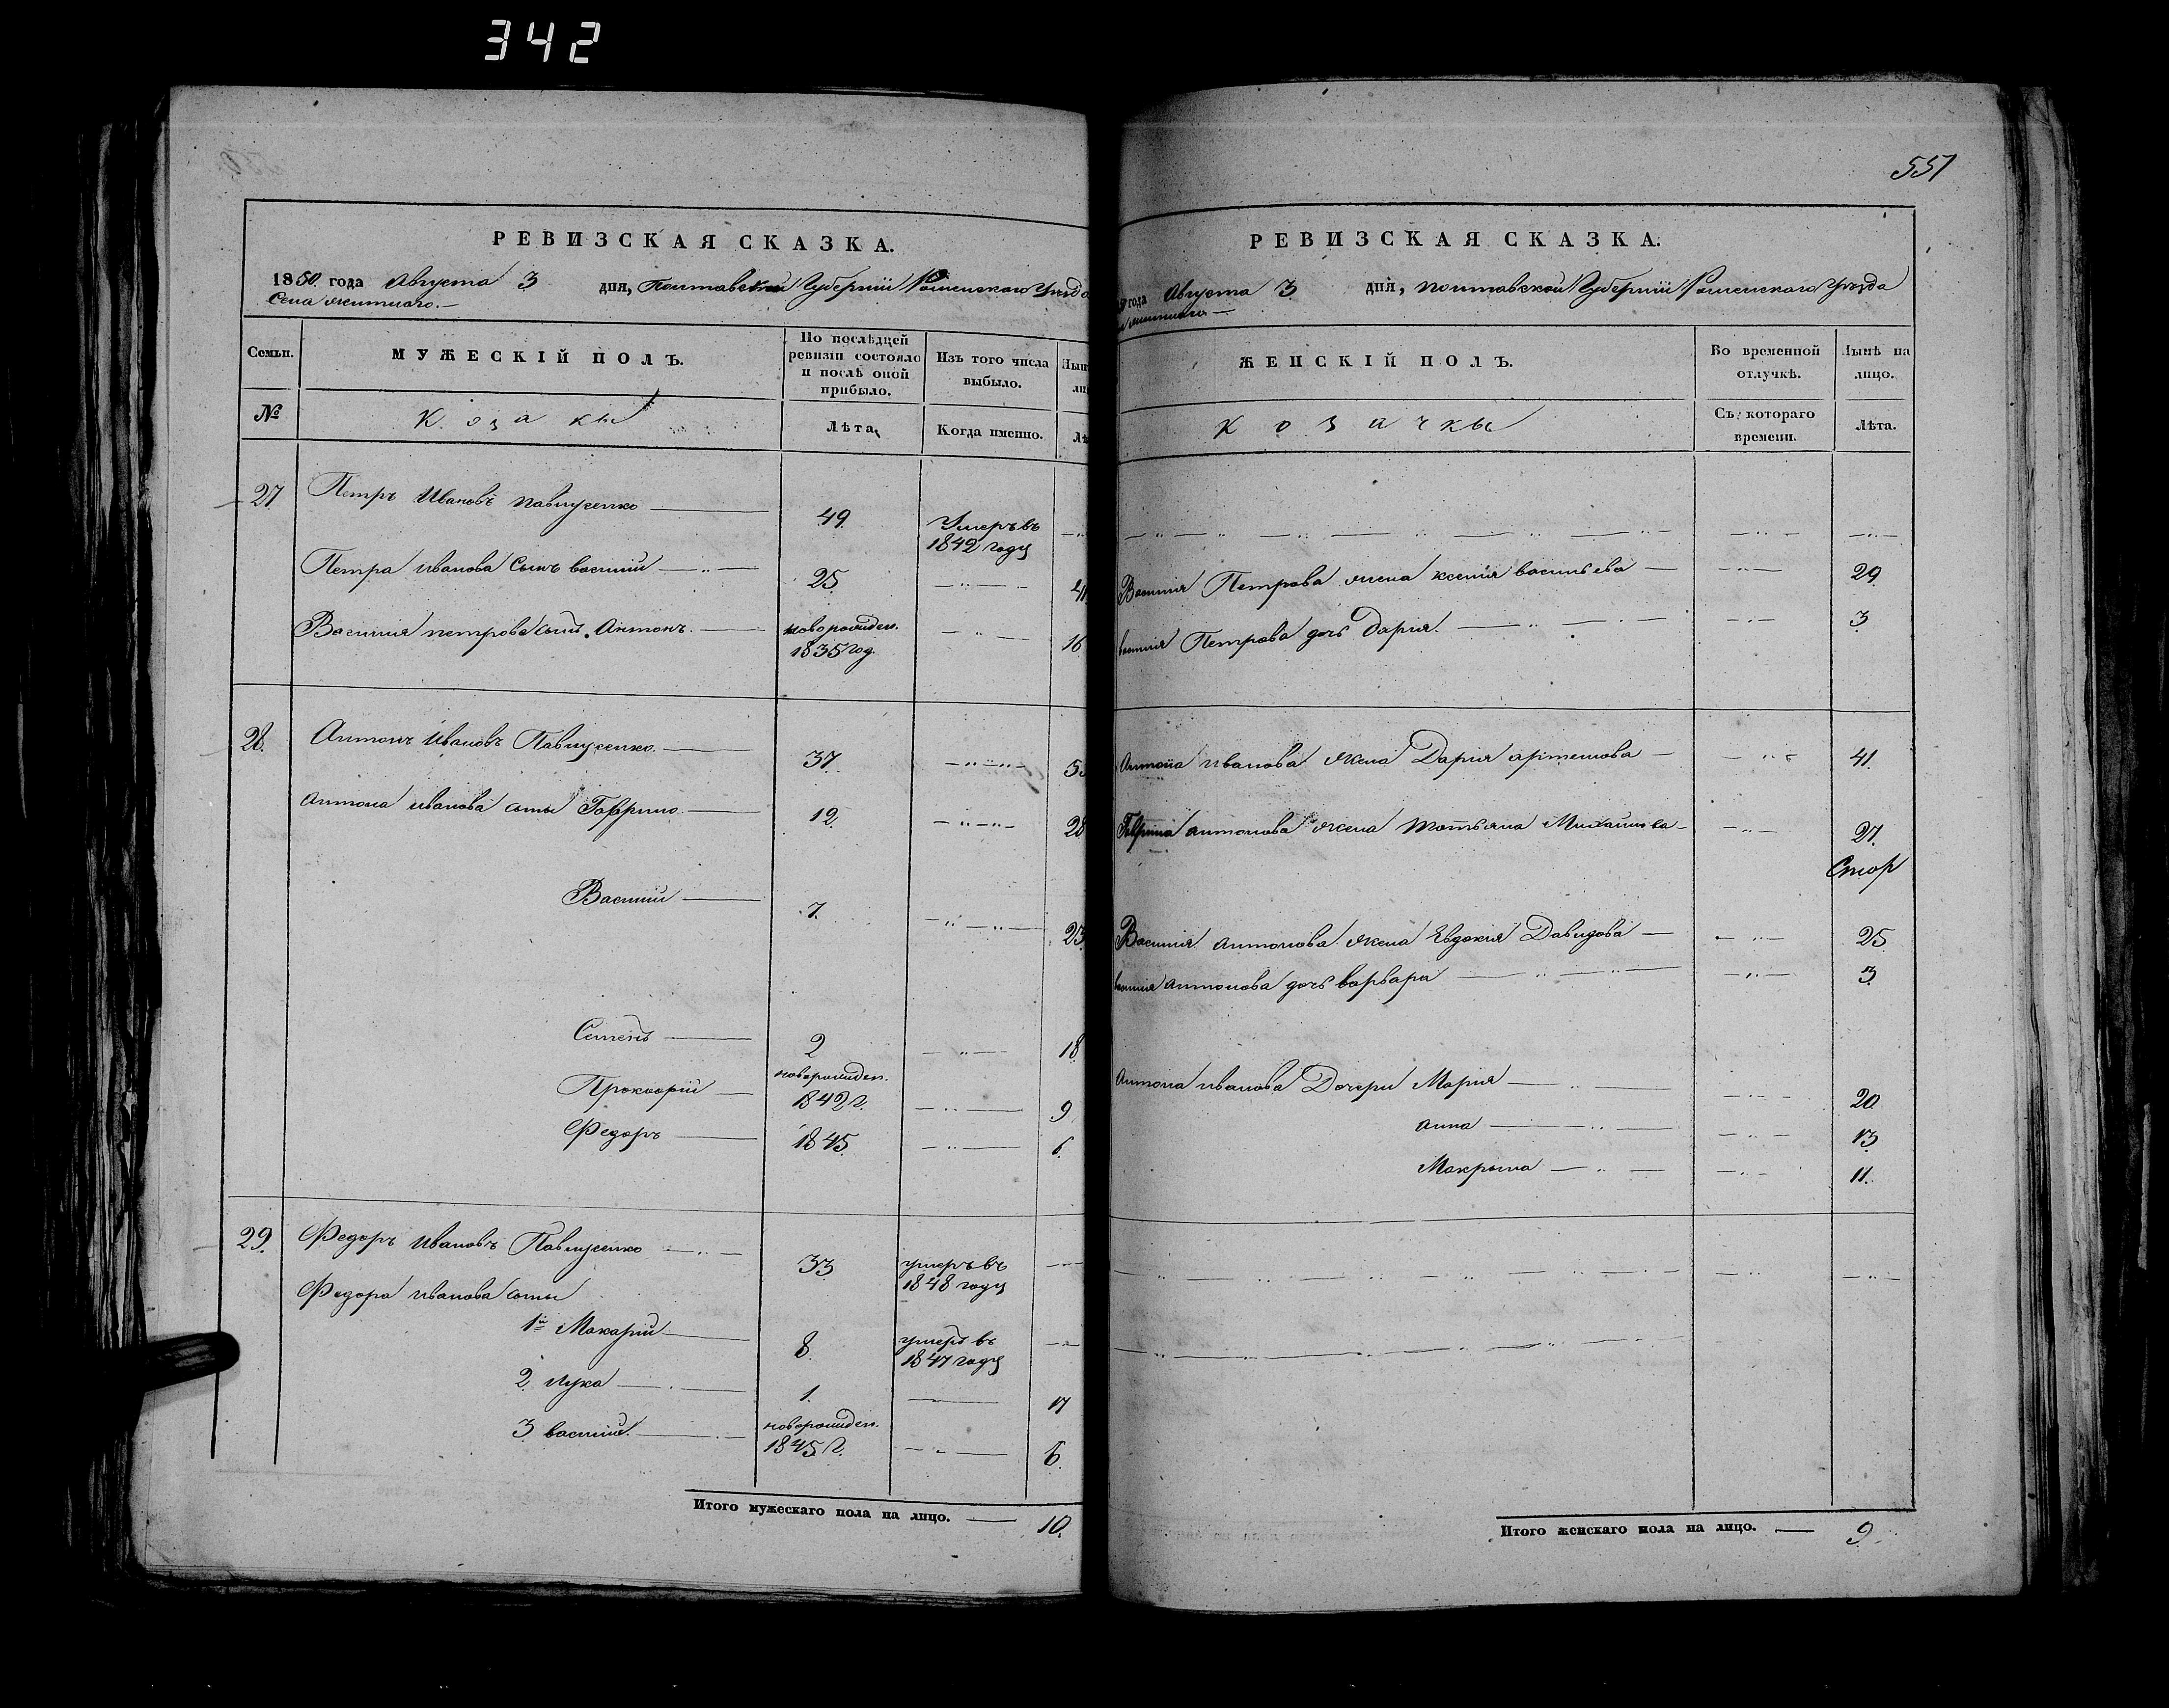 342
РЕВИЗСКАЯ СКАЗКА.
1850 года Августа 3 дня, Полтавской Губерніи Роменскаго Уѣзда
Села
Семьи.
МУЖЕСКІЙ ПОЛЪ.
По послѣдней
ревизіи состояло
и послѣ оной
прибыло.
Изъ того числа
выбыло.
№
Козаки
Лѣта.
Когда именно.
27 Петръ Ивановъ Павлусенко 49. Умеръ въ
1842 году
Петра Иванова сынъ Василій 25. 41
Василія Петрова сынъ Антонъ новорожден. 16
1835 год.
28. Антонъ Ивановъ Павлусенко 37
Антона Иванова сыны Гаврило 12. 28
Василій 7. 23
Семенъ 2 18
Прокофій новорожден. 9
1842 г.
Федоръ 1845. 6.
29. Федоръ Ивановъ Павлусенко 33 умеръ въ
1848 году
Федора Иванова сыны
1й Макарій 8. умеръ въ
1847 году
2. Лука 1. 17
3 Василій новорожден. 6.
1845 г.
Итого мужескаго пола на лицо. 10.
551
РЕВИЗСКАЯ СКАЗКА.
года Августа 3 дня, Полтавской Губерніи Роменскаго Уѣзда
ЖЕНСКІЙ ПОЛЪ.
Во временной
отлучкѣ.
Нынѣ на
лицо.
Козачки
Съ котораго
времени.
Лѣта.
Василія Петрова жена Ксенія Васильева 29.
Василія Петрова дочь Дарія. 3
Антона Иванова жена Дарія Артемова 41.
Гаврила Антонова жена Татьяна Михайлова 27.
Василія Антонова жена Евдокія Давидова 25
Василія Антонова дочь Варвара 3.
Антона Иванова Дочери Марія 20
Анна 13
Макрына 11.
Итого женскаго пола на лицо. 9.